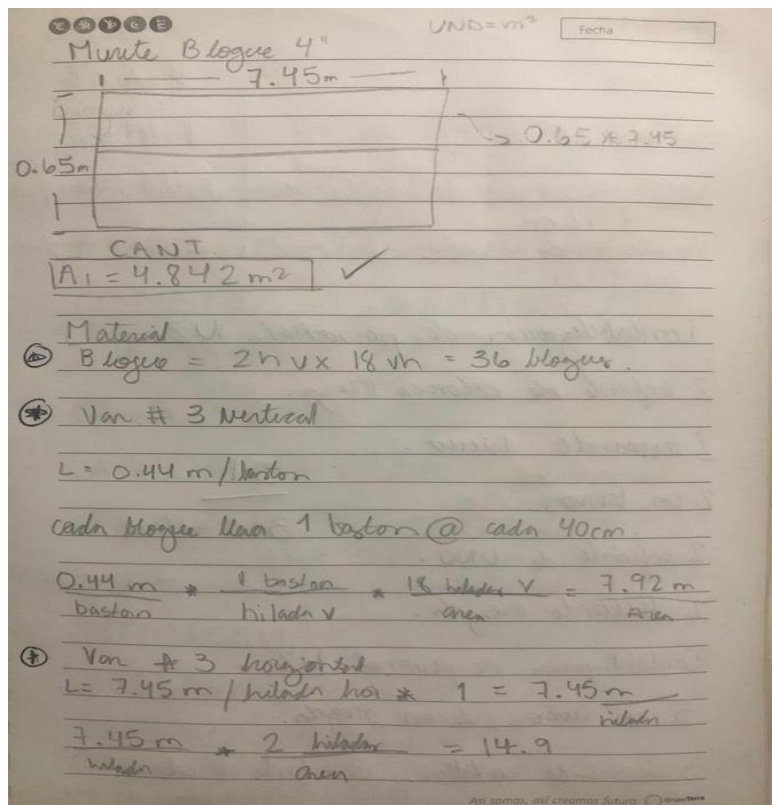 UND = m²
Fecha
Murete Bloque 4"
7.45m
0.65 * 7.45
0.65m
CANT
A1 = 4.842 m2 ✓
Material
Bloque = 2 h v x 18 vh = 36 bloques.
Var # 3 Vertical
L = 0.44 m / baston
cada bloque lleva 1 baston @ cada 40cm.
0.44 m / baston * 1 baston / hilada v * 18 hiladas V / area = 7.92 m / Area
Var # 3 horizontal
L = 7.45 m / hilada hor * 1 = 7.45 m / hilada
7.45 m / hilada * 2 hiladas / area = 14.9
Así somos, así creamos futuro